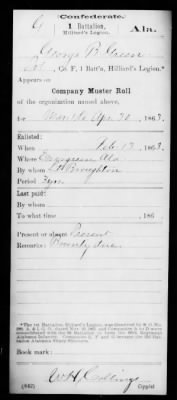 Confederate.
G 1 Battalion, Hilliard's Legion. Ala.
George B. Green
Co. F, 1 Batt'n, Hilliard's Legion.*
Appears on
Company Muster Roll
of the organization named above,
for Apr 30, 1863.
Enlisted:
When Feb 13, 1863.
Where Evergreen Ala
By whom Lt Broughton
Period 3 yrs
Last paid:
By whom
To what time , 186
Present or absent Present
Remarks: Bounty due.
*The 1st Battalion, Hilliard's Legion, was
Book mark:
W H Collings
(642) Copyist